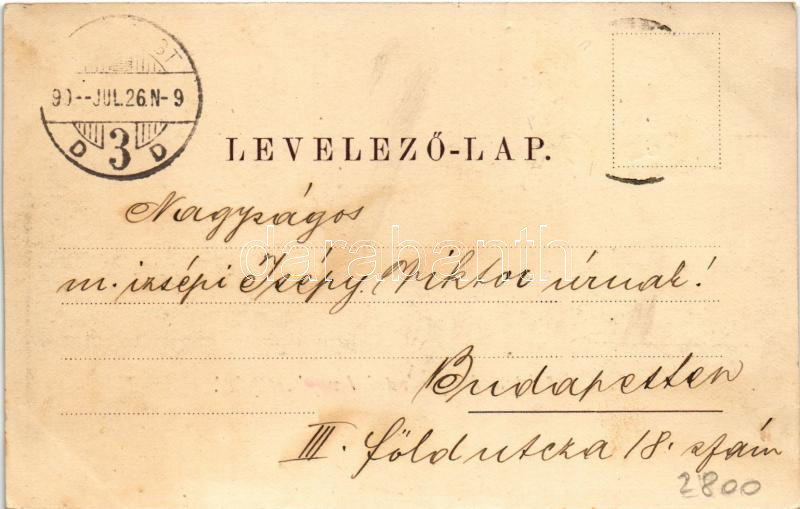 ST
90--JUL.26.N-9
D 3 D
LEVELEZŐ-LAP.
Nagyságos
m. izsépi Izsépy Viktor úrnak!
Budapesten
III. föld utcza 18. szám
2800
darabanth